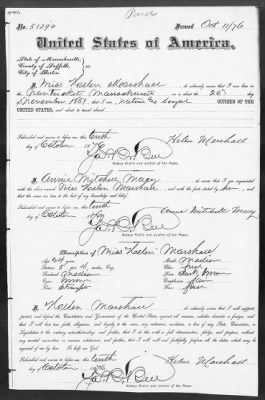 No. 51290 Issued Oct 11/76
United States of America.
State of Massachusetts,
County of Suffolk,
City of Boston
I, Miss Helen Marshall do solemnly swear that I was born in
Nantucket Massachusetts on the 20th day
November 1851 am a native and loyal CITIZEN OF THE
UNITED STATES, and about to travel
Subscribed and sworn to before me this tenth
day of October 1876 Helen Marshall
Notary Public and Justice of the Peace.
I, Annie Mitchell Macy do solemnly swear that I am acquainted
with the above named Miss Helen Marshall and with the facts stated by her and
that the same are true to the best of my knowledge and belief.
Subscribed and sworn to before me this tenth
day of October 1876 Annie Mitchell Macy
Notary Public and Justice of the Peace.
Description of Miss Helen Marshall
Age 24 years Mouth Medium
Stature 5 feet 4 inches, Eng. Chin
Forehead Medium Hair Dark brown
Eyes brown Complexion fair
Nose Straight Face
I, Helen Marshall do solemnly swear that I will support,
protect, and defend the Constitution and Government of the United States against all enemies, whether domestic or foreign, and
that I will bear true faith, allegiance, and loyalty to the same, any ordinance, resolution, or law of any State, Convention, or
Legislature to the contrary notwithstanding; and further, that I do this with a full determination, pledge, and purpose, without
any mental reservation or evasion whatsoever; and further, that I will well and faithfully perform all the duties which may be
required of me by law. So help me God.
Subscribed and sworn to before me this tenth
day of October 1876 Helen Marshall
Notary Public and Justice of the Peace.